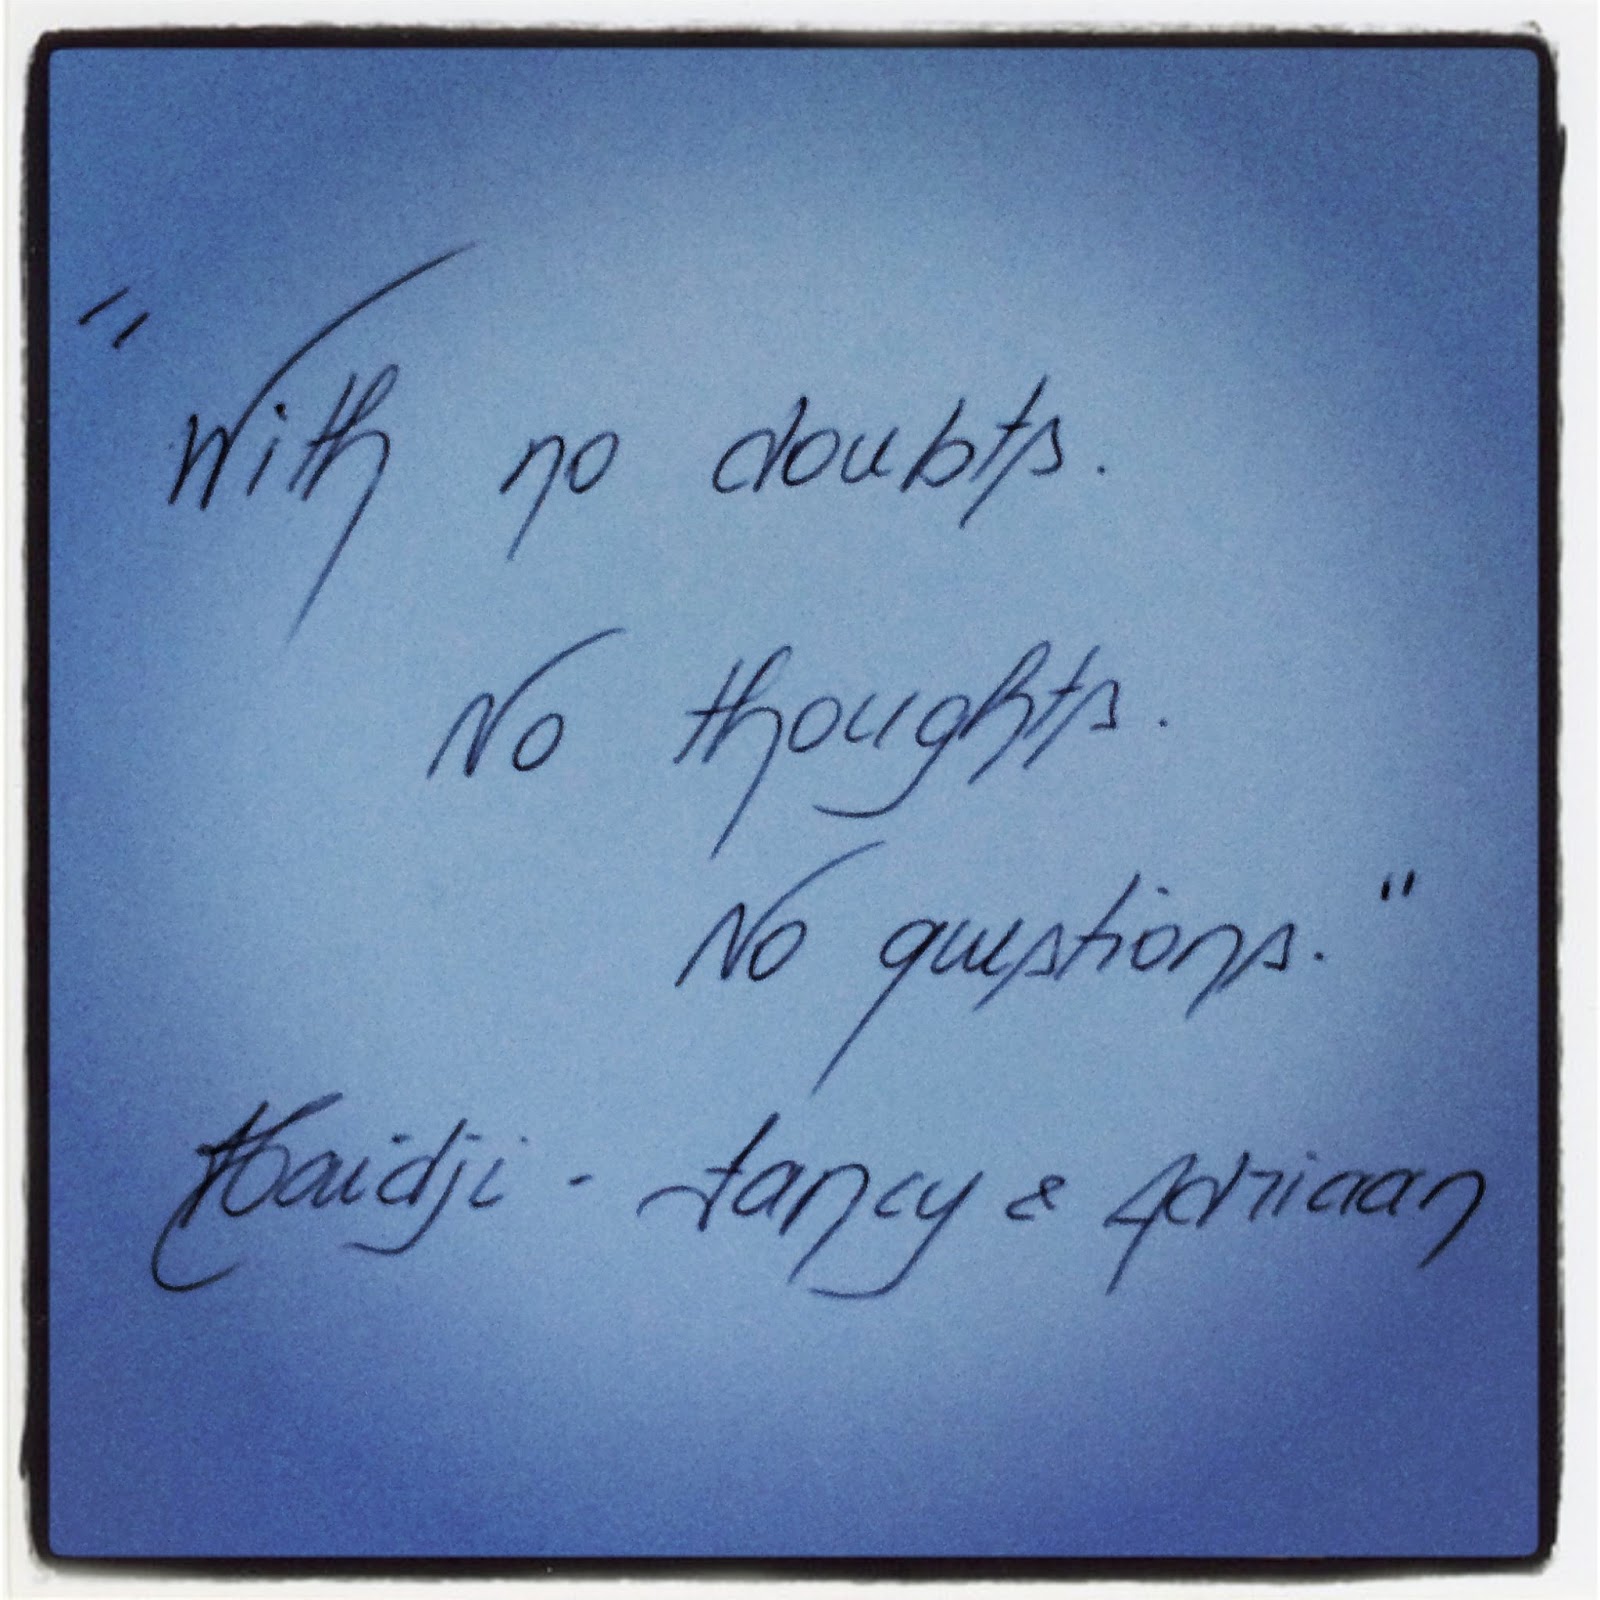 "With no doubts.
No thoughts.
No questions."
Haidji - Fancy & Adriaan